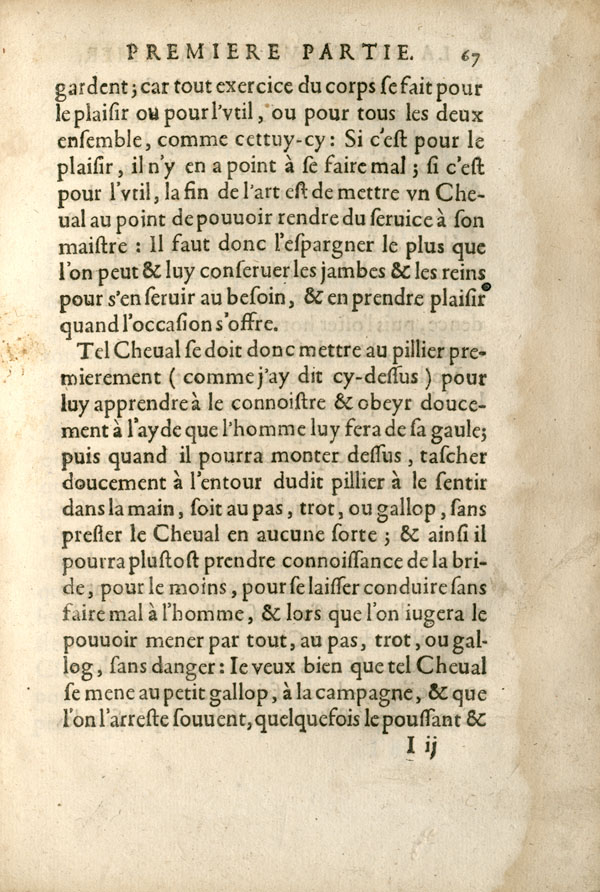 PREMIERE PARTIE. 67
gardent; car tout exercice du corps ſe fait pour
le plaiſir ou pour l'vtil, ou pour tous les deux
enſemble, comme cettuy-cy: Si c'eſt pour le
plaiſir, il n'y en a point à ſe faire mal; ſi c'eſt
pour l'vtil, la fin de l'art eſt de mettre vn Che-
ual au point de pouuoir rendre du ſeruice à ſon
maiſtre : Il faut donc l'eſpargner le plus que
l'on peut & luy conſeruer les jambes & les reins
pour s'en ſeruir au beſoin, & en prendre plaiſir
quand l'occaſion s'offre.
Tel Cheual ſe doit donc mettre au pillier pre-
mierement ( comme j'ay dit cy-deſſus ) pour
luy apprendre à le connoiſtre & obeyr douce-
ment à l'ayde que l'homme luy fera de ſa gaule;
puis quand il pourra monter deſſus, taſcher
doucement à l'entour dudit pillier à le ſentir
dans la main, ſoit au pas, trot, ou gallop, ſans
preſſer le Cheual en aucune ſorte ; & ainſi il
pourra pluſtoſt prendre connoiſſance de la bri-
de, pour le moins, pour ſe laiſſer conduire ſans
faire mal à l'homme, & lors que l'on iugera le
pouuoir mener par tout, au pas, trot, ou gal-
log, ſans danger: Ie veux bien que tel Cheual
ſe mene au petit gallop, à la campagne, & que
l'on l'arreſte ſouuent, quelquefois le pouſſant &
I ij